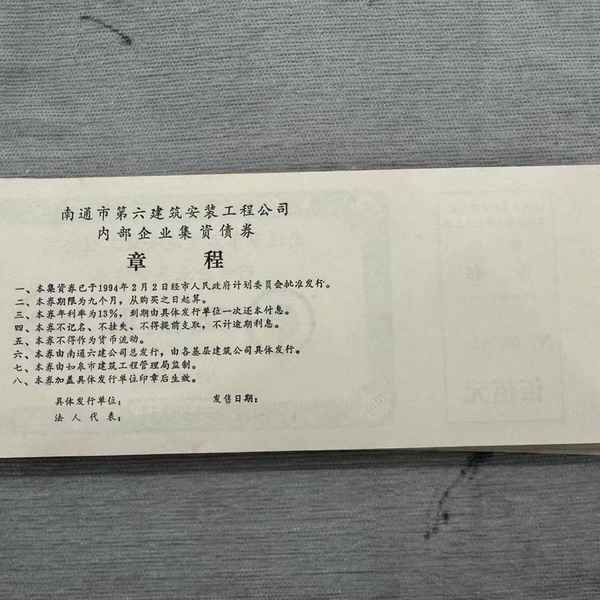 南通市第六建筑安装工程公司
内部企业集资债券
章程
一、本集资券已于1994年2月2日经市人民政府计划委员会批准发行。
二、本券期限为九个月，从购买之日起算。
三、本券年利率为13%，到期由具体发行单位一次还本付息。
四、本券不记名、不挂失、不得提前支取，不计逾期利息。
五、本券不得作为货币流动。
六、本券由南通六建公司总发行，由各基层建筑公司具体发行。
七、本券由如皋市建筑工程管理局监制。
八、本券加盖具体发行单位印章后生效。
具体发行单位： 发售日期：
法人代表：